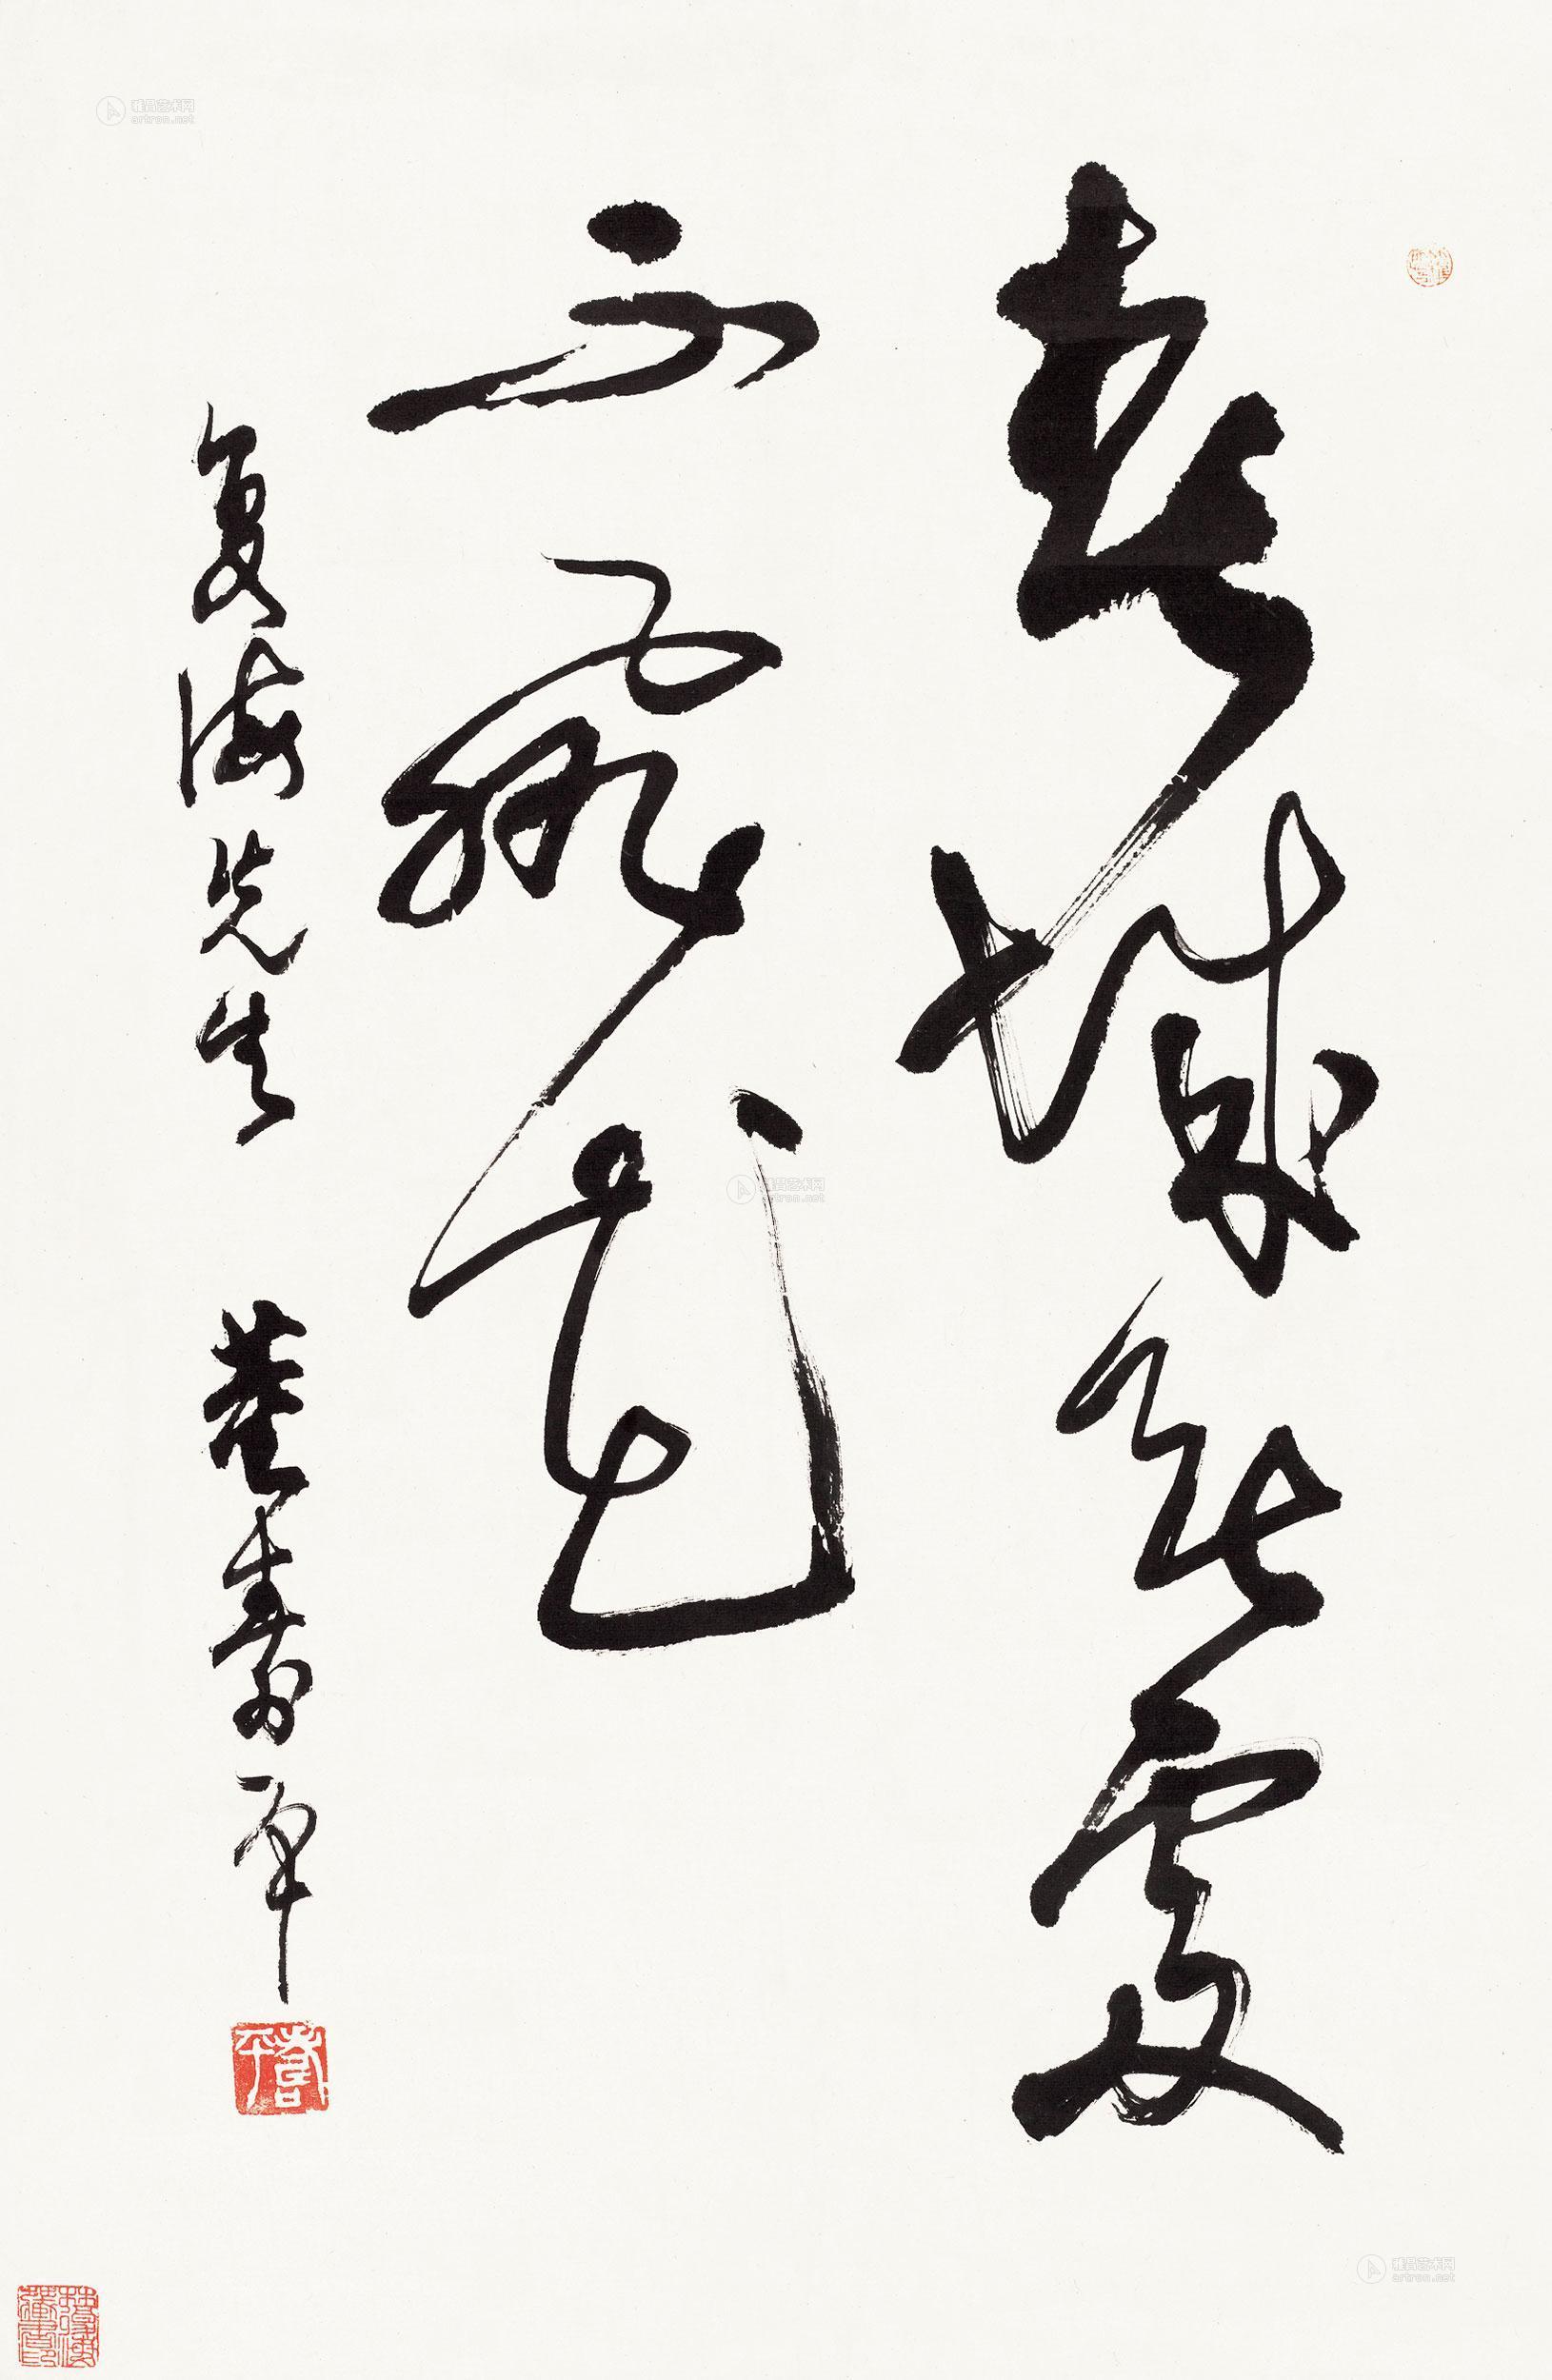 春城無處
不飛花
复海先生 董壽平
壽平
雅昌艺术网
artron.net
雅昌艺术网
artron.net
雅昌艺术网
artron.net